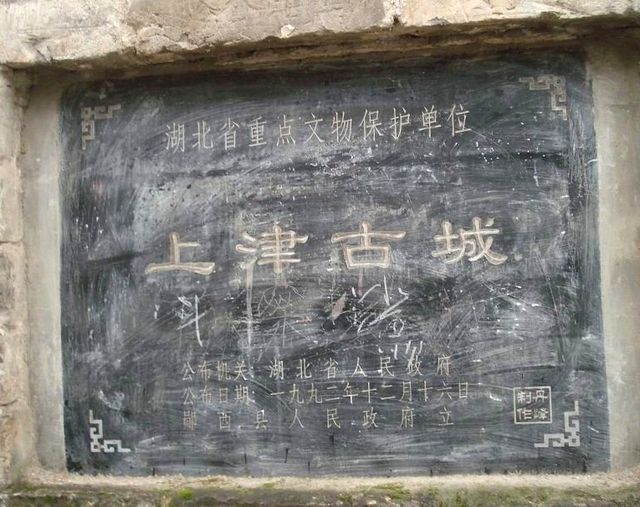 湖北省重点文物保护单位
上津古城
公布机关：湖北省人民政府
公布日期：一九九二年十二月十六日
郧西县人民政府立
丹峰
制作